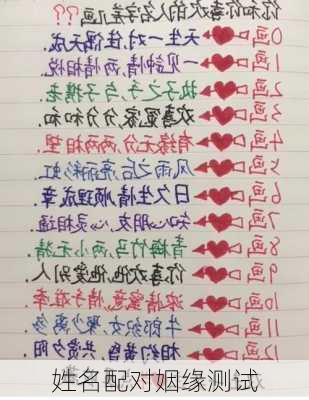 你和你喜欢的人名字差几画??
0画 天生一对,佳偶天成.
1画 一见钟情,两情相悦.
2画 执子之手,与子携老.
3画 欢喜冤家,分分和和.
4画 有缘无分,两两相望.
5画 风雨之后,亮丽彩虹.
6画 日久生情,顺理成章
7画 知心朋友,心灵相通.
8画 青梅竹马,两小无猜.
9画 你喜欢他,他爱别人.
10画 浓情蜜意,情子难牵.
11画 牛郎织女,聚少离多
12画 相约黄昏,共赏夕阳.
姓名配对姻缘测试